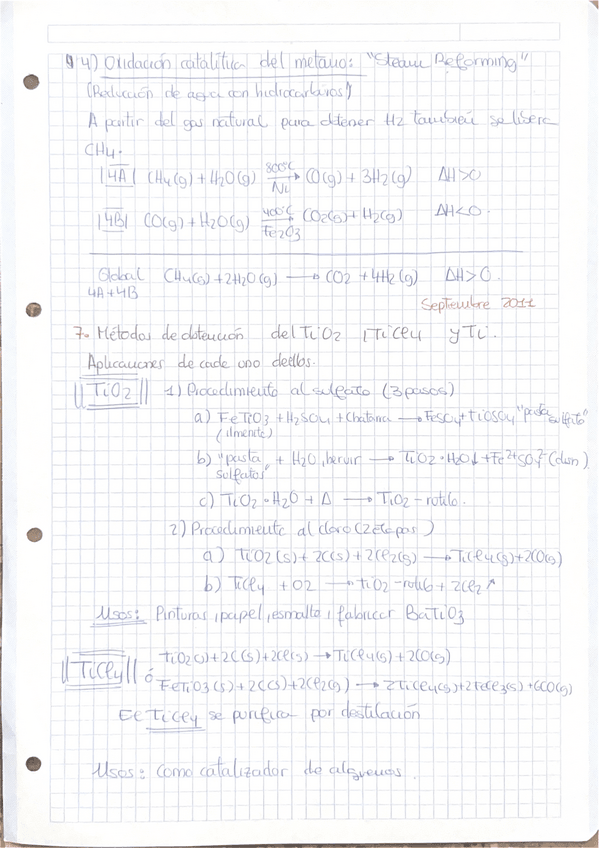 4) Oxidación catalítica del metano: "Steam Reforming"
(Reducción de agua con hidrocarburos)
A partir del gas natural para obtener H2 también se libera
CH4.
|4A| CH4(g) + H2O(g) 800ºC Ni → CO(g) + 3H2(g) ΔH>0
|4B| CO(g) + H2O(g) 400ºC Fe2O3 → CO2(g) + H2(g) ΔH<0.
Global CH4(g) + 2H2O(g) → CO2 + 4H2(g) ΔH>0.
4A+4B
Septiembre 2011
7- Métodos de obtención del TiO2, TiCl4 y Ti.
Aplicaciones de cada uno de ellos.
||TiO2|| 1) Procedimiento al sulfato (3 pasos)
a) FeTiO3 + H2SO4 + Chatarra → FeSO4 + TiOSO4 "pasta sulfato"
(ilmenita)
b) "pasta sulfatos" + H2O, hervir → TiO2·H2O↓ + Fe2+SO4 2- (disn)
c) TiO2·H2O + Δ → TiO2-rutilo.
2) Procedimiento al cloro (2 etapas)
a) TiO2(s) + 2C(s) + 2Cl2(g) → TiCl4(g) + 2CO(g)
b) TiCl4 + O2 → TiO2-rutilo + 2Cl2↗
Usos: Pinturas, papel, esmalte, fabricar BaTiO3
||TiCl4|| TiO2(s) + 2C(s) + 2Cl(s) → TiCl4(s) + 2CO(g)
ó
FeTiO3(s) + 2C(s) + 2Cl2(g) → 2TiCl4(g) + 2FeCl3(s) + 6CO(g)
El TiCl4 se purifica por destilación
Usos: Como catalizador de alquenos.